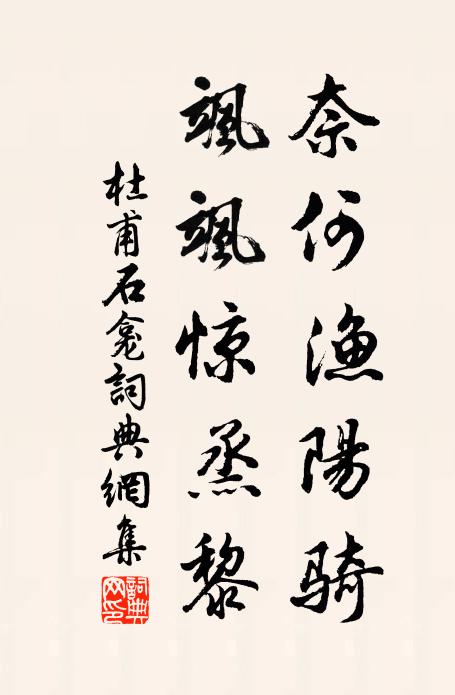 奈何漁陽騎
颯颯惊烝黎
杜甫石龛詞典網集
詞典网印